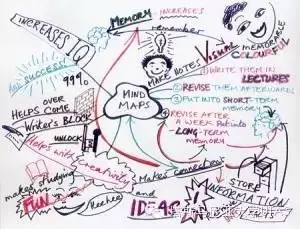 MEMORY INCREASES
remember
INCREASES IQ
and SUCCESS!
999%
MAKE NOTES
VISUAL
MEMORABLE
COLOURFUL
① WRITE THEM IN
LECTURES
② REVISE THEM AFTERWARDS
③ PUT INTO SHORT-TERM
MEMORY
④ REVISE AFTER
A WEEK Put into
LONG-TERM
MEMORY
MIND
MAPS
HELPS
OVER
COME
Writer's BLOCK
UNLOCK
Helps with creativity
Makes connections
makes studying
FUN
Heehee
and
IDEAS
STORE
INFORMATION